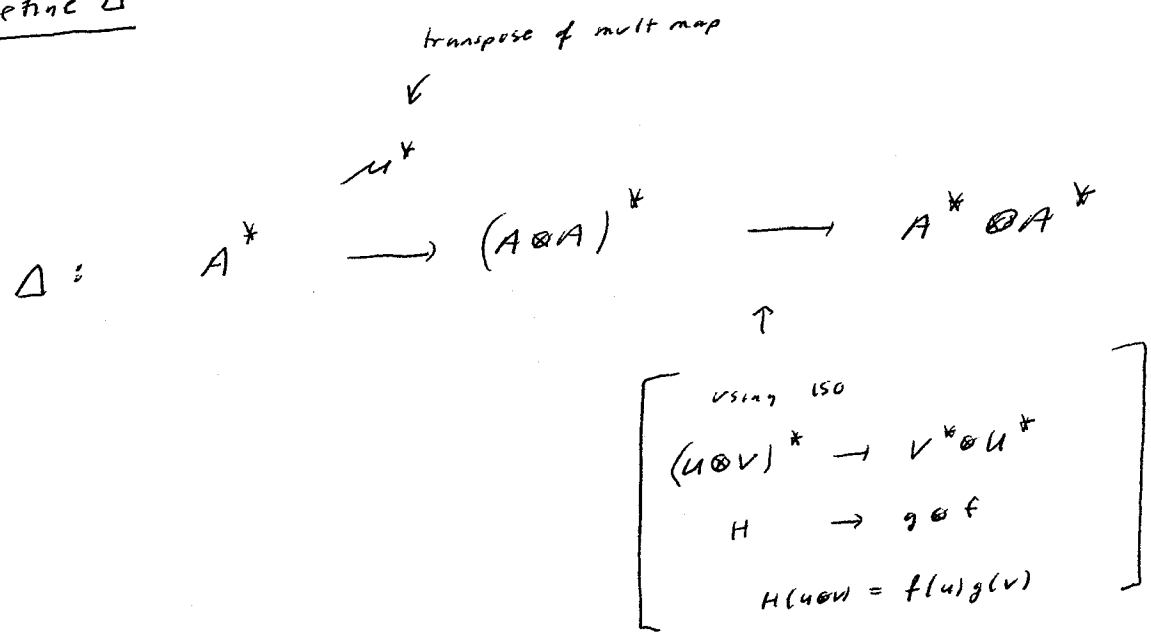 efine Δ
transpose of mult map
↙
μ*
Δ : A* → (A⊗A)* → A*⊗A*
↑
using iso
(u⊗v)* → v*⊗u*
H → g⊗f
H(u⊗v) = f(u)g(v)